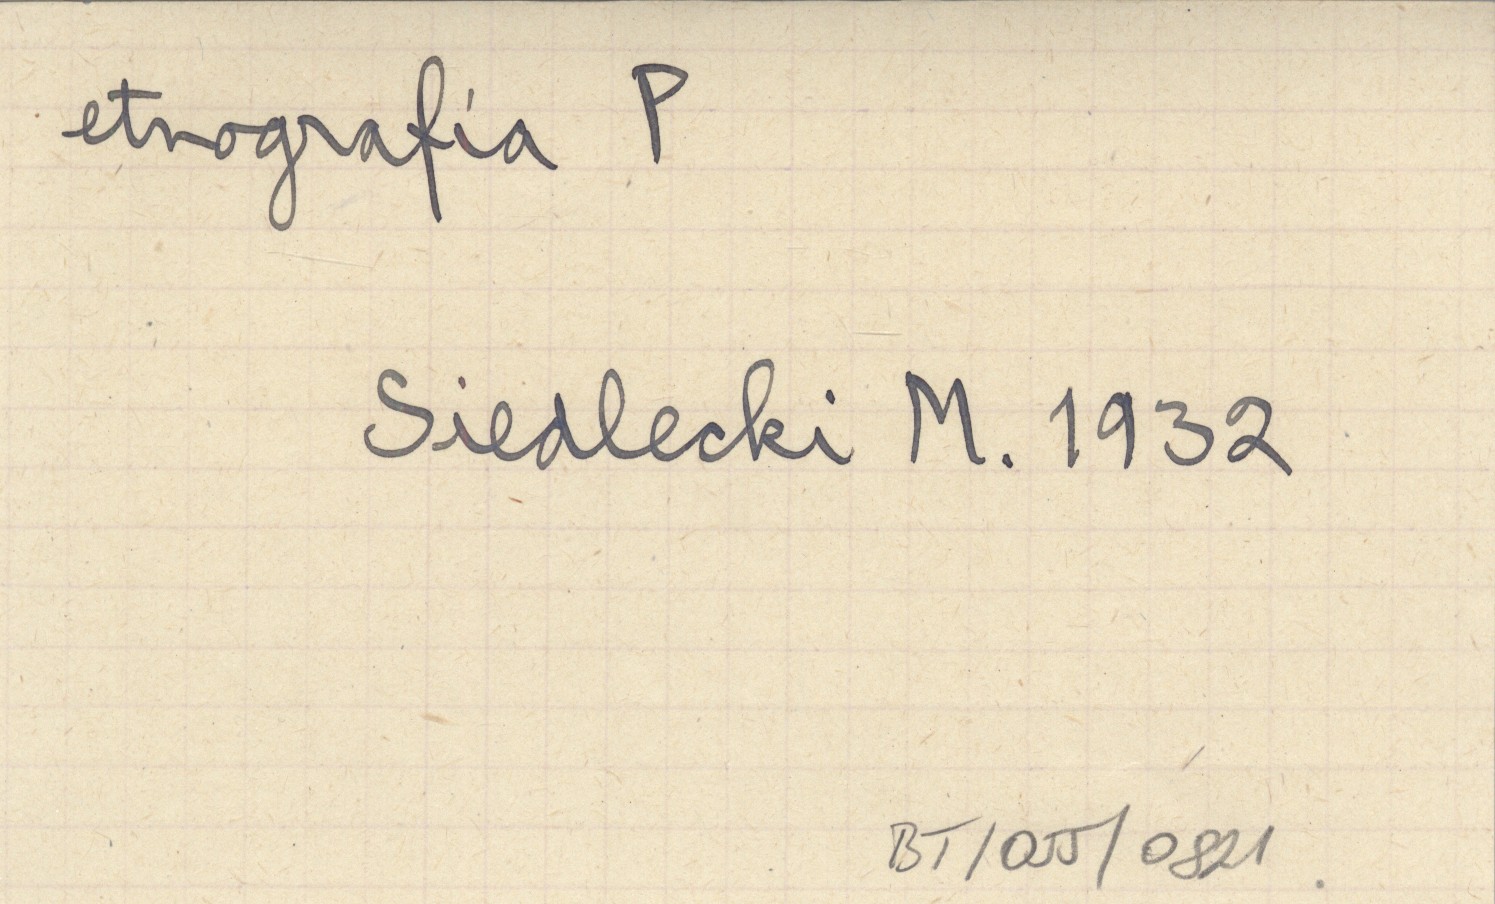 etnografia P
Siedlecki M. 1932
BT/OJJ/0821